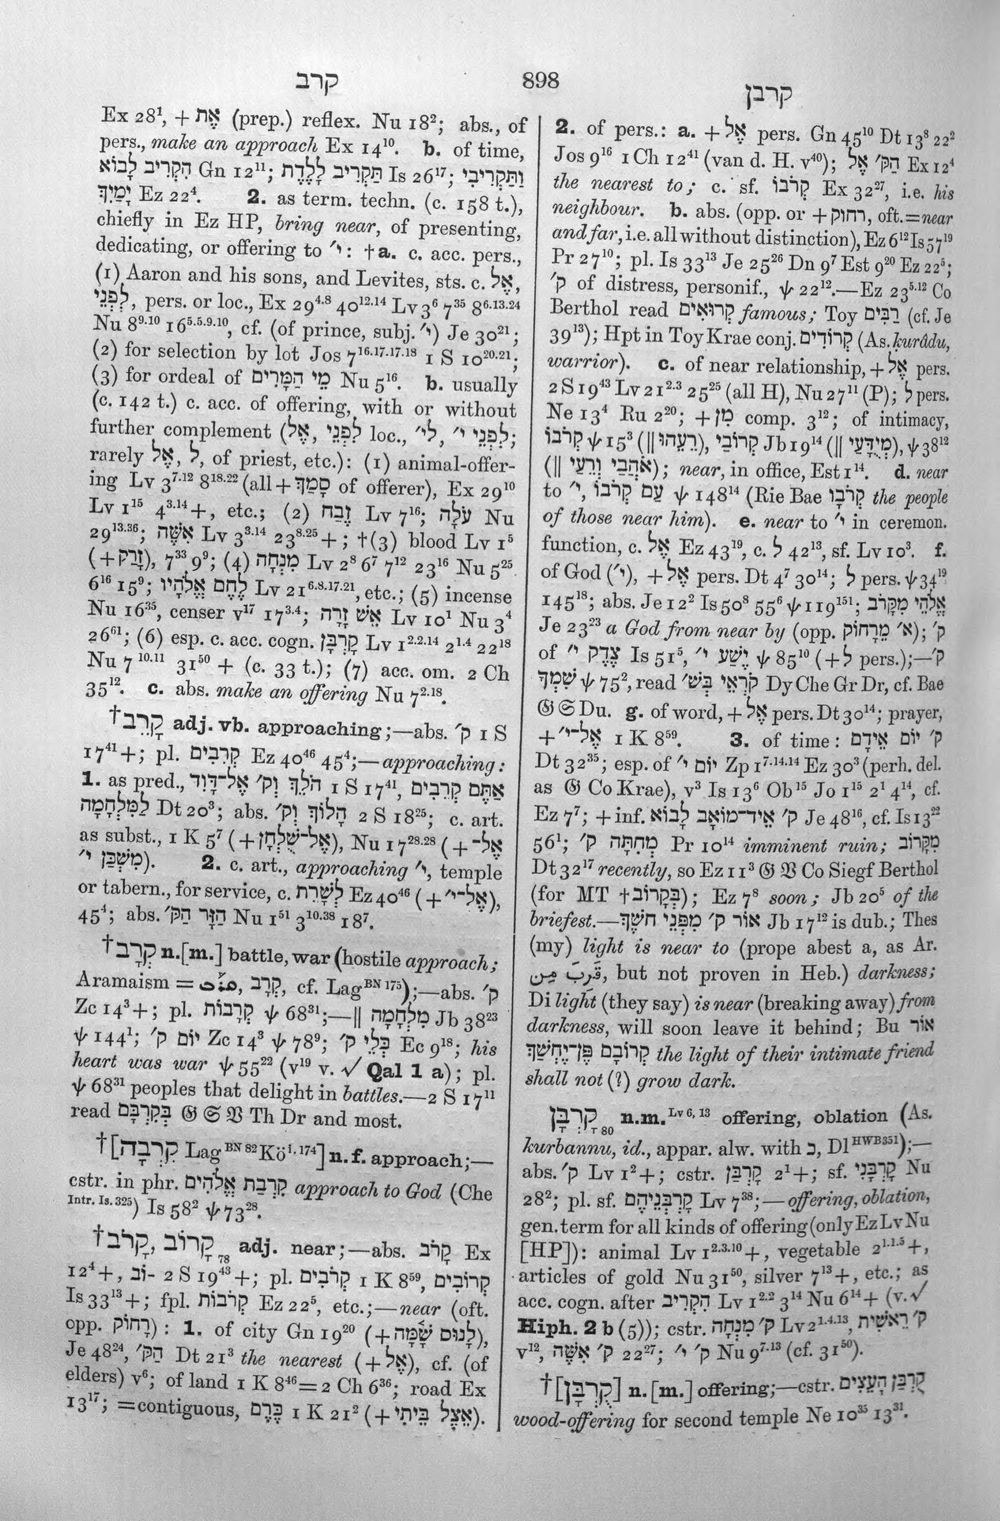 קרב
898
קרבן
Ex 28¹, + אֶת (prep.) reflex. Nu 18²; abs., of
pers., make an approach Ex 14¹⁰. b. of time,
הִקְרִיב לָבוֹא Gn 12¹¹; תַּקְרִיב לָלֶדֶת Is 26¹⁷; וַתַּקְרִיבִי
יָמַיִךְ Ez 22⁴. 2. as term. techn. (c. 158 t.),
chiefly in Ez HP, bring near, of presenting,
dedicating, or offering to י״: †a. c. acc. pers.,
(1) Aaron and his sons, and Levites, sts. c. אֶל,
לִפְנֵי, pers. or loc., Ex 29⁴·⁸ 40¹²·¹⁴ Lv 3⁶ 7³⁵ 8⁶·¹³·²⁴
Nu 8⁹·¹⁰ 16⁵·⁵·⁹·¹⁰, cf. (of prince, subj. י״) Je 30²¹;
(2) for selection by lot Jos 7¹⁶·¹⁷·¹⁷·¹⁸ 1 S 10²⁰·²¹;
(3) for ordeal of מֵי הַמָּרִים Nu 5¹⁶. b. usually
(c. 142 t.) c. acc. of offering, with or without
further complement (לִפְנֵי, אֶל loc., לִפְנֵי י״, לי״;
rarely אֶל, לְ, of priest, etc.): (1) animal-offer-
ing Lv 3⁷·¹² 8¹⁸·²² (all + סָמַךְ of offerer), Ex 29¹⁰
Lv 1¹⁵ 4³·¹⁴ +, etc.; (2) זֶבַח Lv 7¹⁶; עֹלָה Nu
29¹³·³⁶; אִשֶּׁה Lv 3³·¹⁴ 23⁸·²⁵ + ; †(3) blood Lv 1⁵
(+ זָרַק), 7³³ 9⁹; (4) מִנְחָה Lv 2⁸ 6⁷ 7¹² 23¹⁶ Nu 5²⁵
6¹⁶ 15⁹; לֶחֶם אֱלֹהָיו Lv 21⁶·⁸·¹⁷·²¹, etc.; (5) incense
Nu 16³⁵, censer v¹⁷ 17³·⁴; אֵשׁ זָרָה Lv 10¹ Nu 3⁴
26⁶¹; (6) esp. c. acc. cogn. קָרְבָּן Lv 1²·²·¹⁴ 2¹·⁴ 22¹⁸
Nu 7¹⁰·¹¹ 31⁵⁰ + (c. 33 t.); (7) acc. om. 2 Ch
35¹². c. abs. make an offering Nu 7²·¹⁸.
†קָרֵב adj. vb. approaching;—abs. ק׳ 1 S
17⁴¹ +; pl. קְרֵבִים Ez 40⁴⁶ 45⁴;—approaching:
1. as pred., הֹלֵךְ וְק׳ אֶל־דָּוִד 1 S 17⁴¹, אַתֶּם קְרֵבִים
לַמִּלְחָמָה Dt 20³; abs. הָלוֹךְ וְק׳ 2 S 18²⁵; c. art.
as subst., 1 K 5⁷ (+ אֶל־שֻׁלְחַן), Nu 17²⁸·²⁸ (+ אֶל־
מִשְׁכַּן י״). 2. c. art., approaching י״, temple
or tabern., for service, c. לְשָׁרֵת Ez 40⁴⁶ (+ אֶל־י״),
45⁴; abs. הַזָּר הַקּ׳ Nu 1⁵¹ 3¹⁰·³⁸ 18⁷.
†קְרָב n.[m.] battle, war (hostile approach;
Aramaism = קְרָב, cf. Lag ᴮᴺ ¹⁷⁵);—abs. ק׳
Zc 14³ +; pl. קְרָבוֹת ψ 68³¹;— ‖ מִלְחָמָה Jb 38²³
ψ 144¹; יוֹם ק׳ Zc 14³ ψ 78⁹; כְּלֵי ק׳ Ec 9¹⁸; his
heart was war ψ 55²² (v¹⁹ v. √ Qal 1 a); pl.
ψ 68³¹ peoples that delight in battles.—2 S 17¹¹
read בְּקִרְבָּם 𝔊 𝔖 𝔙 Th Dr and most.
†[קִרְבָה Lag ᴮᴺ ⁸² Kö ⁱ· ¹⁷⁴] n. f. approach;—
cstr. in phr. קִרְבַת אֱלֹהִים approach to God (Che
Intr. Is. 325) Is 58² ψ 73²⁸.
†קָרוֹב, קָרֹב ₇₈ adj. near;—abs. קָרֹב Ex
12⁴ +, ־וֹב 2 S 19⁴³ +; pl. קְרֹבִים 1 K 8⁵⁹, קְרוֹבִים
Is 33¹³ +; fpl. קְרֹבוֹת Ez 22⁵, etc.;—near (oft.
opp. רָחוֹק): 1. of city Gn 19²⁰ (+ לָנוּס שָׁמָּה),
Je 48²⁴, הַקּ׳ Dt 21³ the nearest (+ אֶל), cf. (of
elders) v⁶; of land 1 K 8⁴⁶ = 2 Ch 6³⁶; road Ex
13¹⁷; = contiguous, כֶּרֶם 1 K 21² (+ אֵצֶל בֵּיתִי).
2. of pers.: a. + אֶל pers. Gn 45¹⁰ Dt 13⁸ 22²
Jos 9¹⁶ 1 Ch 12⁴¹ (van d. H. v⁴⁰); הַקּ׳ אֶל Ex 12⁴
the nearest to; c. sf. קְרֹבוֹ Ex 32²⁷, i.e. his
neighbour. b. abs. (opp. or + רחוק, oft. = near
and far, i.e. all without distinction), Ez 6¹² Is 57¹⁹
Pr 27¹⁰; pl. Is 33¹³ Je 25²⁶ Dn 9⁷ Est 9²⁰ Ez 22⁵;
ק׳ of distress, personif., ψ 22¹².—Ez 23⁵·¹² Co
Berthol read קְרוּאִים famous; Toy רַבִּים (cf. Je
39¹³); Hpt in Toy Krae conj. קְרוּדִים (As. ḳurâdu,
warrior). c. of near relationship, + אֶל pers.
2 S 19⁴³ Lv 21²·³ 25²⁵ (all H), Nu 27¹¹ (P); לְ pers.
Ne 13⁴ Ru 2²⁰; + מִן comp. 3¹²; of intimacy,
קְרֹבוֹ ψ 15³ (‖ רֵעֵהוּ), קְרוֹבַי Jb 19¹⁴ (‖ מְיֻדָּעַי), ψ 38¹²
(‖ אֹהֲבַי וְרֵעַי); near, in office, Est 1¹⁴. d. near
to י״, עַם קְרֹבוֹ ψ 148¹⁴ (Rie Bae קְרֹבָו the people
of those near him). e. near to י״ in ceremon.
function, c. אֶל Ez 43¹⁹, c. לְ 42¹³, sf. Lv 10³. f.
of God (י״), + אֶל pers. Dt 4⁷ 30¹⁴; לְ pers. ψ 34¹⁹
145¹⁸; abs. Je 12² Is 50⁸ 55⁶ ψ 119¹⁵¹; אֱלֹהֵי מִקָּרֹב
Je 23²³ a God from near by (opp. א׳ מֵרָחוֹק); ק׳
of צֶדֶק י״ Is 51⁵, יֵשַׁע י״ ψ 85¹⁰ (+ לְ pers.);—ק׳
שְׁמֶךָ ψ 75², read קֹרְאֵי בְשׁ׳ Dy Che Gr Dr, cf. Bae
𝔊 𝔖 Du. g. of word, + אֶל pers. Dt 30¹⁴; prayer,
+ אֶל־י״ 1 K 8⁵⁹. 3. of time: ק׳ יוֹם אֵידָם
Dt 32³⁵; esp. of יוֹם י״ Zp 1⁷·¹⁴·¹⁴ Ez 30³ (perh. del.
as 𝔊 Co Krae), v³ Is 13⁶ Ob¹⁵ Jo 1¹⁵ 2¹ 4¹⁴, cf.
Ez 7⁷; + inf. ק׳ אֵיד־מוֹאָב לָבוֹא Je 48¹⁶, cf. Is 13²²
56¹; ק׳ מְחִתָּה Pr 10¹⁴ imminent ruin; מִקָּרוֹב
Dt 32¹⁷ recently, so Ez 11³ 𝔊 𝔙 Co Siegf Berthol
(for MT †בְּקָרוֹב); Ez 7⁸ soon; Jb 20⁵ of the
briefest.—אוֹר ק׳ מִפְּנֵי חשֶׁךְ Jb 17¹² is dub.; Thes
(my) light is near to (prope abest a, as Ar.
قَرُبَ مِن, but not proven in Heb.) darkness;
Di light (they say) is near (breaking away) from
darkness, will soon leave it behind; Bu אוֹר
קְרוֹבָם פֶּן־יֶחְשַׁךְ the light of their intimate friend
shall not (?) grow dark.
קָרְבָּן ₈₀ n.m. Lv 6, 13 offering, oblation (As.
ḳurbannu, id., appar. alw. with ב, Dl ᴴᵂᴮ³⁵¹);—
abs. ק׳ Lv 1² +; cstr. קָרְבַּן 2¹ +; sf. קָרְבָּנִי Nu
28²; pl. sf. קָרְבְּנֵיהֶם Lv 7³⁸;—offering, oblation,
gen. term for all kinds of offering (only Ez Lv Nu
[HP]): animal Lv 1²·³·¹⁰ +, vegetable 2¹·¹·⁵ +,
articles of gold Nu 31⁵⁰, silver 7¹³ +, etc.; as
acc. cogn. after הִקְרִיב Lv 1²·² 3¹⁴ Nu 6¹⁴ + (v. √
Hiph. 2 b (5)); cstr. ק׳ מִנְחָה Lv 2¹·⁴·¹³, ק׳ רֵאשִׁית
v¹², ק׳ אִשֶּׁה 22²⁷; ק׳ י״ Nu 9⁷·¹³ (cf. 31⁵⁰).
†[קֻרְבָּן] n. [m.] offering;—cstr. קֻרְבַּן הָעֵצִים
wood-offering for second temple Ne 10³⁵ 13³¹.